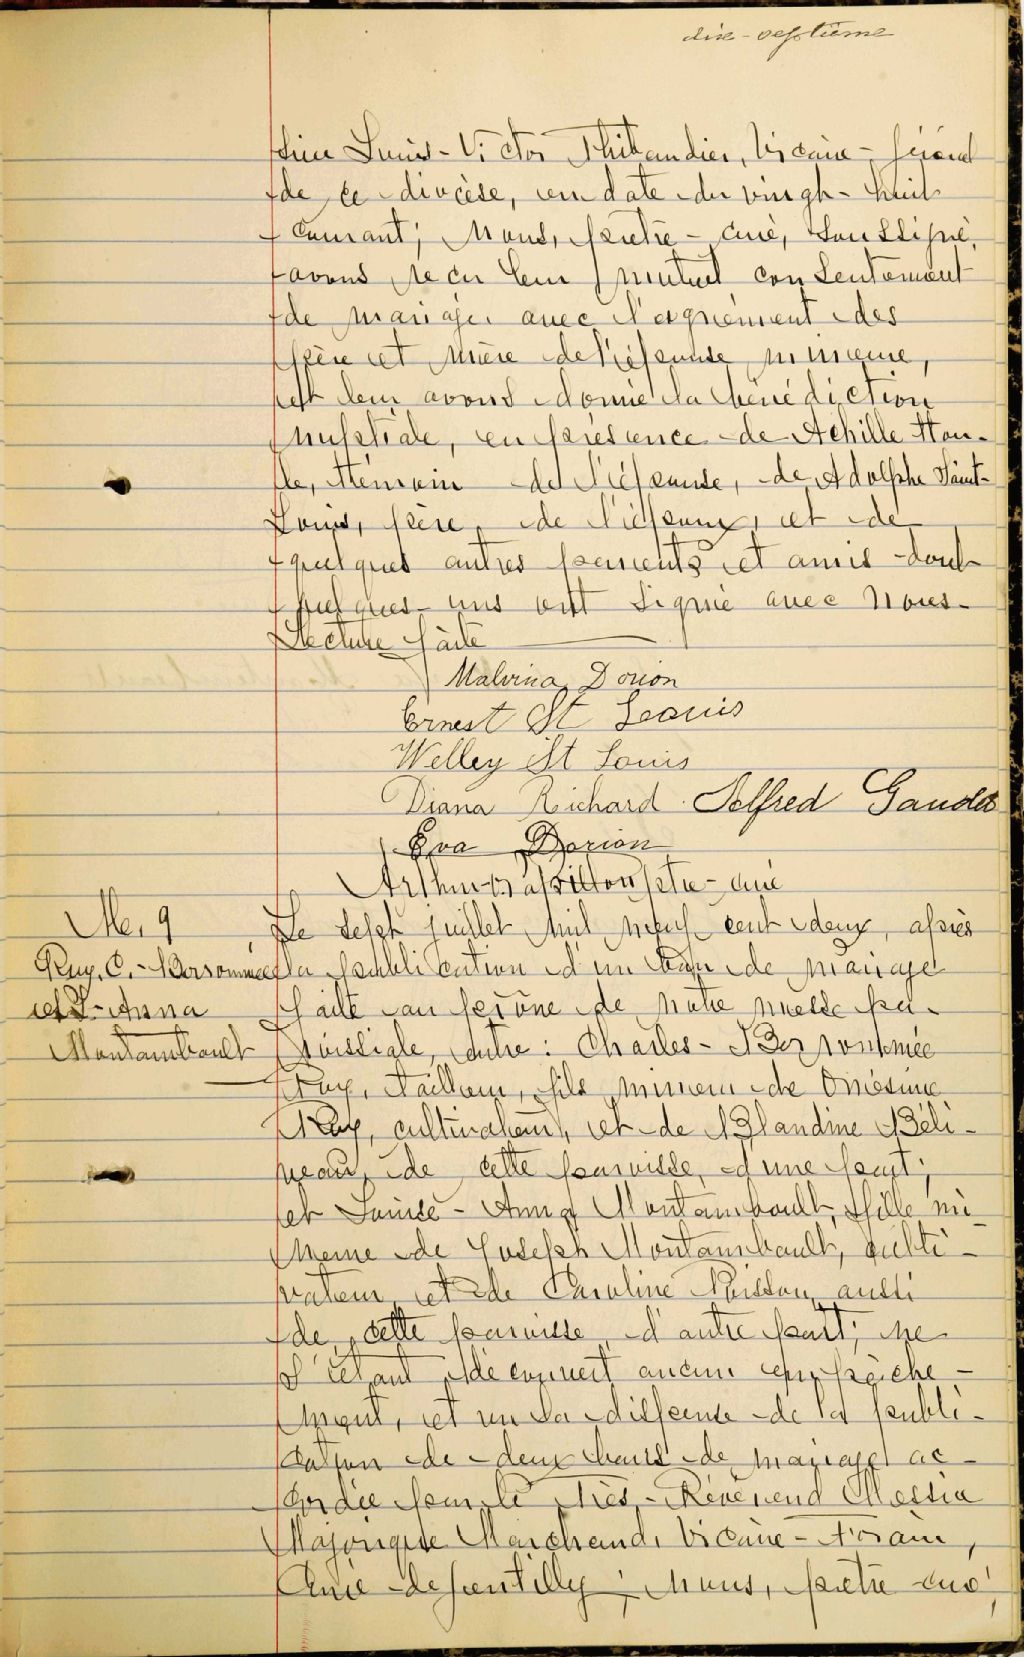 dix-septième
sieu Louis-Victor Thibaudier, Vicaire-général
de ce diocèse, en date du vingt-huit
courant; Nous, prêtre-curé, soussigné,
avons reçu leur mutuel consentement
de mariage, avec l'agrément des
père et mère de l'épouse mineure,
et leur avons donné la bénédiction
nuptiale, en présence de Achille Hou-
le, témoin de l'épouse, de Adolphe Saint-
Louis, père de l'époux, et de
quelques autres parents et amis dont
quelques-uns ont signé avec Nous.
Lecture faite
Malvina Dorion
Ernest St Leouis
Welley St Louis
Diana Richard Alfred Gaudet
Eva Dorion
Arthur Papillon ptre-curé
M. 9
Ruy, C.-Borromée
et L.-Anna
Montambault
Le sept juillet mil neuf cent deux, après
la publication d'un ban de mariage
faite au prône de notre messe pa-
roissiale, entre: Charles-Borrommée
Ruy, tailleur, fils mineur de Onésime
Ruy, cultivateur, et de Blandine Béli-
veau, de cette paroisse, d'une part;
et Louise-Anna Montambault, fille mi-
neure de Joseph Montambault, culti-
vateur, et de Caroline Poisson, aussi
de cette paroisse, d'autre part; ne
s'étant découvert aucun empêche-
ment, et vu la dispense de la publi-
cation de deux bans de mariage ac-
cordée par le Très-Révérend Messire
Majorique Marchand, Vicaire-Forain,
Curé de Gentilly; Nous, prêtre-curé,